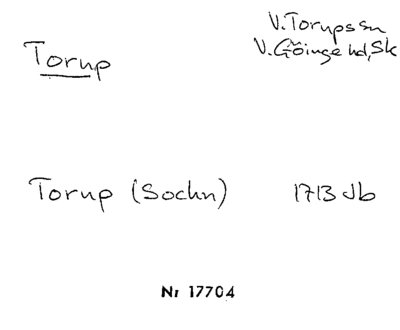 Torup
V. Torupssn
V. Göinge hd, Sk
Torup (Sochn)
1713 Jb
Nr 17704